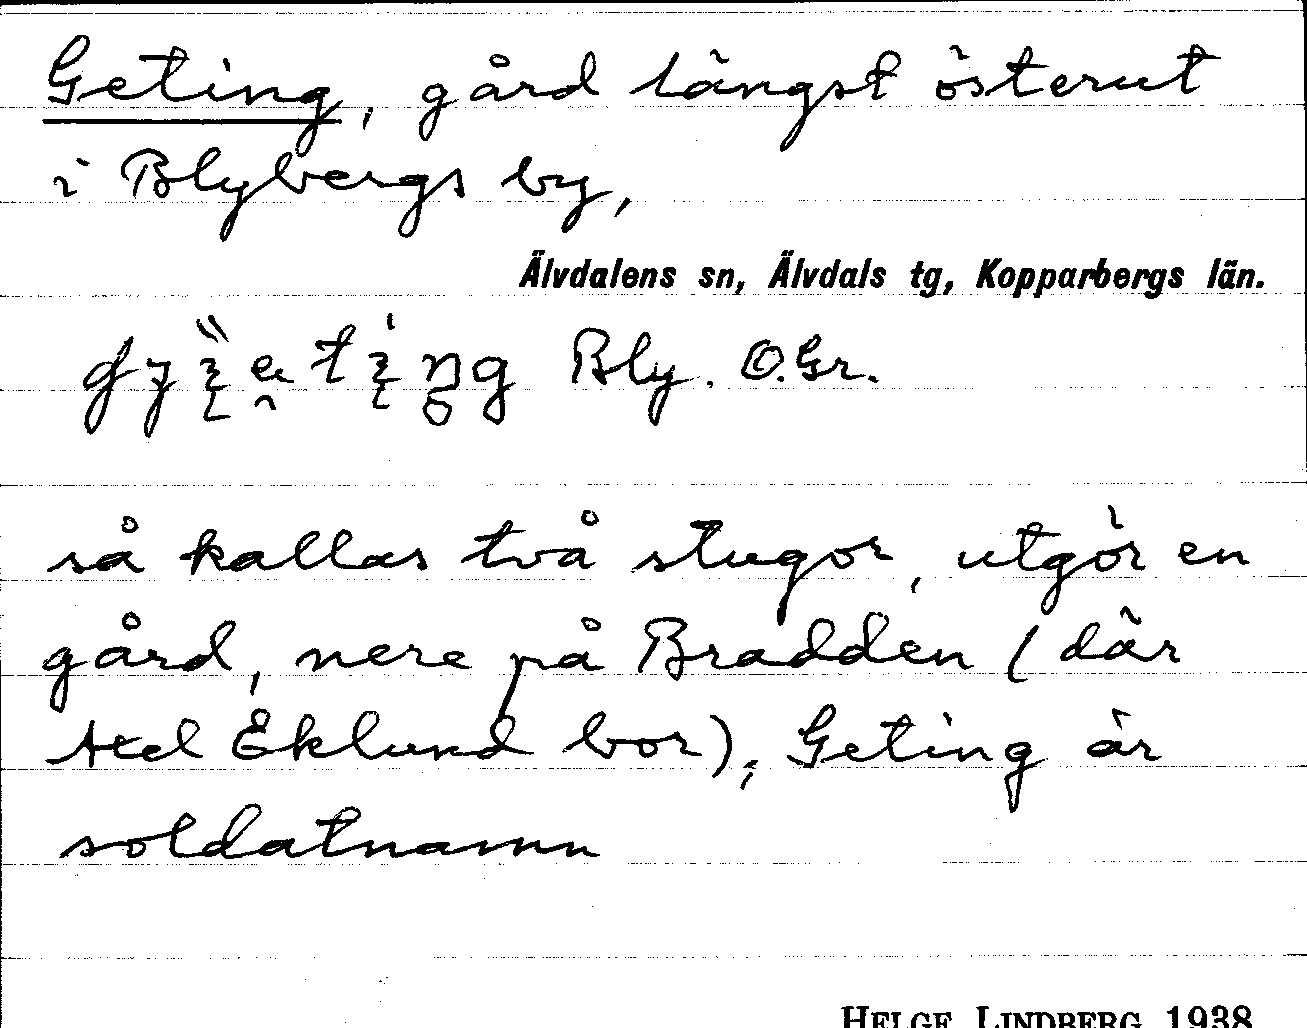 Geting, gård längst österut
i Blybergs by,
Älvdalens sn, Älvdals tg, Kopparbergs län.
Bly. O.Gr.
så kallas två stugor, utgör en
gård, nere på Bradden (där
Axel Eklund bor); Geting är
soldatnamn
HELGE LINDBERG 1938